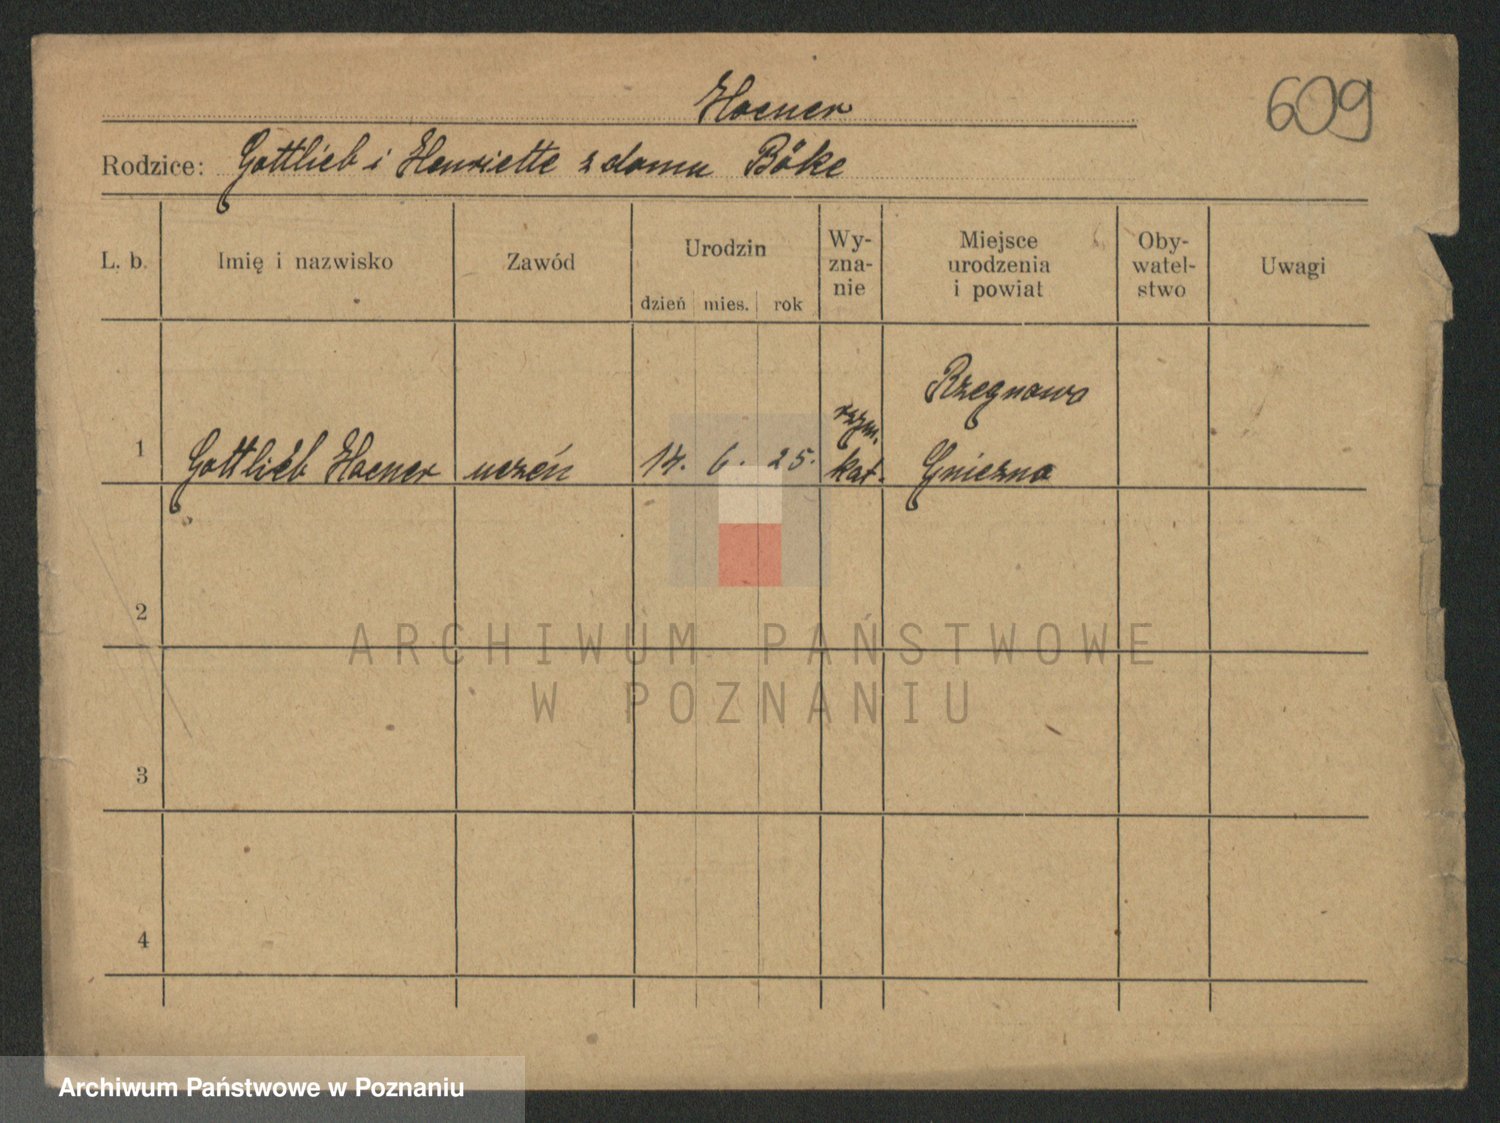 Hoener
609
Rodzice: Gottlieb i Henriette z domu Böke
L. b. Imię i nazwisko Zawód Urodzin dzień mies. rok Wy-zna-nie Miejsce urodzenia i powiat Oby-watel-stwo Uwagi
Rzegnowo
1 Gottlieb Hoener uczeń 14. 6. 25. rzym. kat. Gniezno
2
ARCHIWUM PAŃSTWOWE
W POZNANIU
3
4
Archiwum Państwowe w Poznaniu